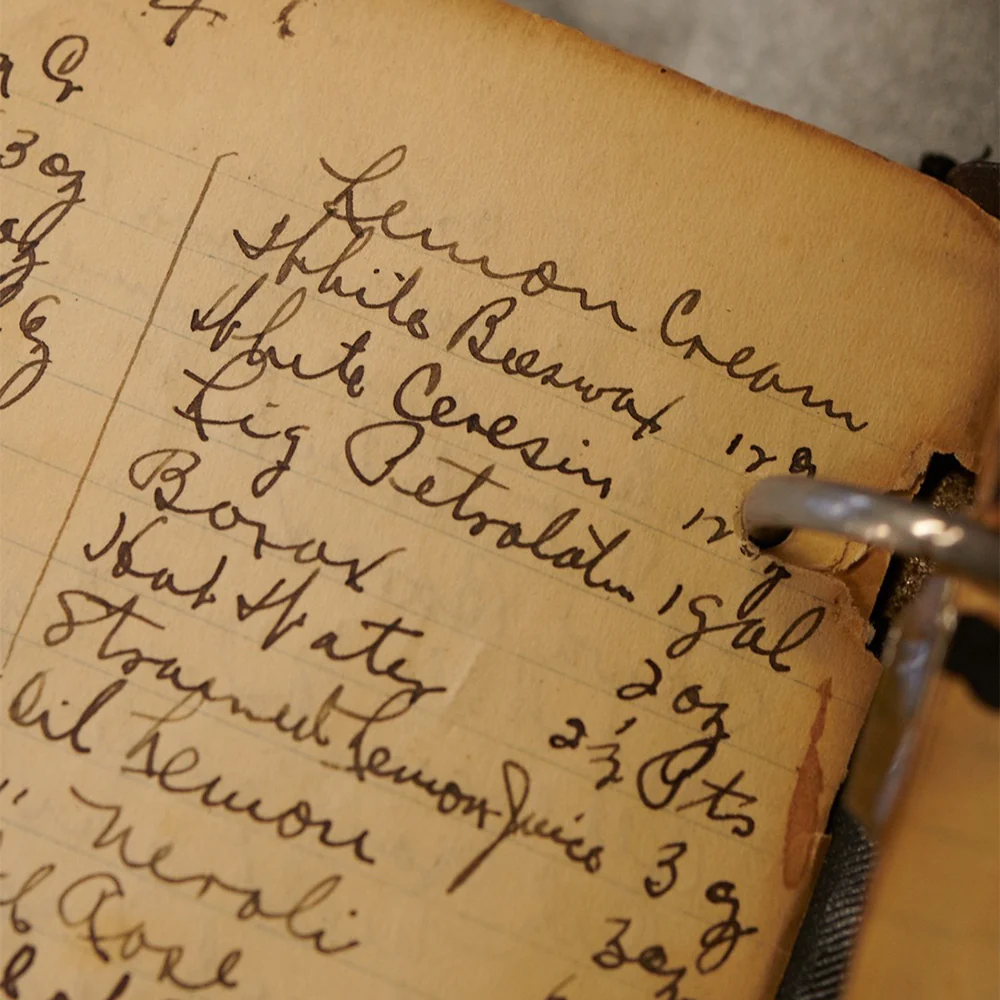 3 oz
oz
Lemon Cream
White Beeswax 12 oz
White Ceresin 12 oz
Liq Petrolatum 1 gal
Borax 2 oz
Hot Water 2½ Pts
Strained Lemon Juice 3 oz
Oil Lemon 3 oz
" Neroli
Rose